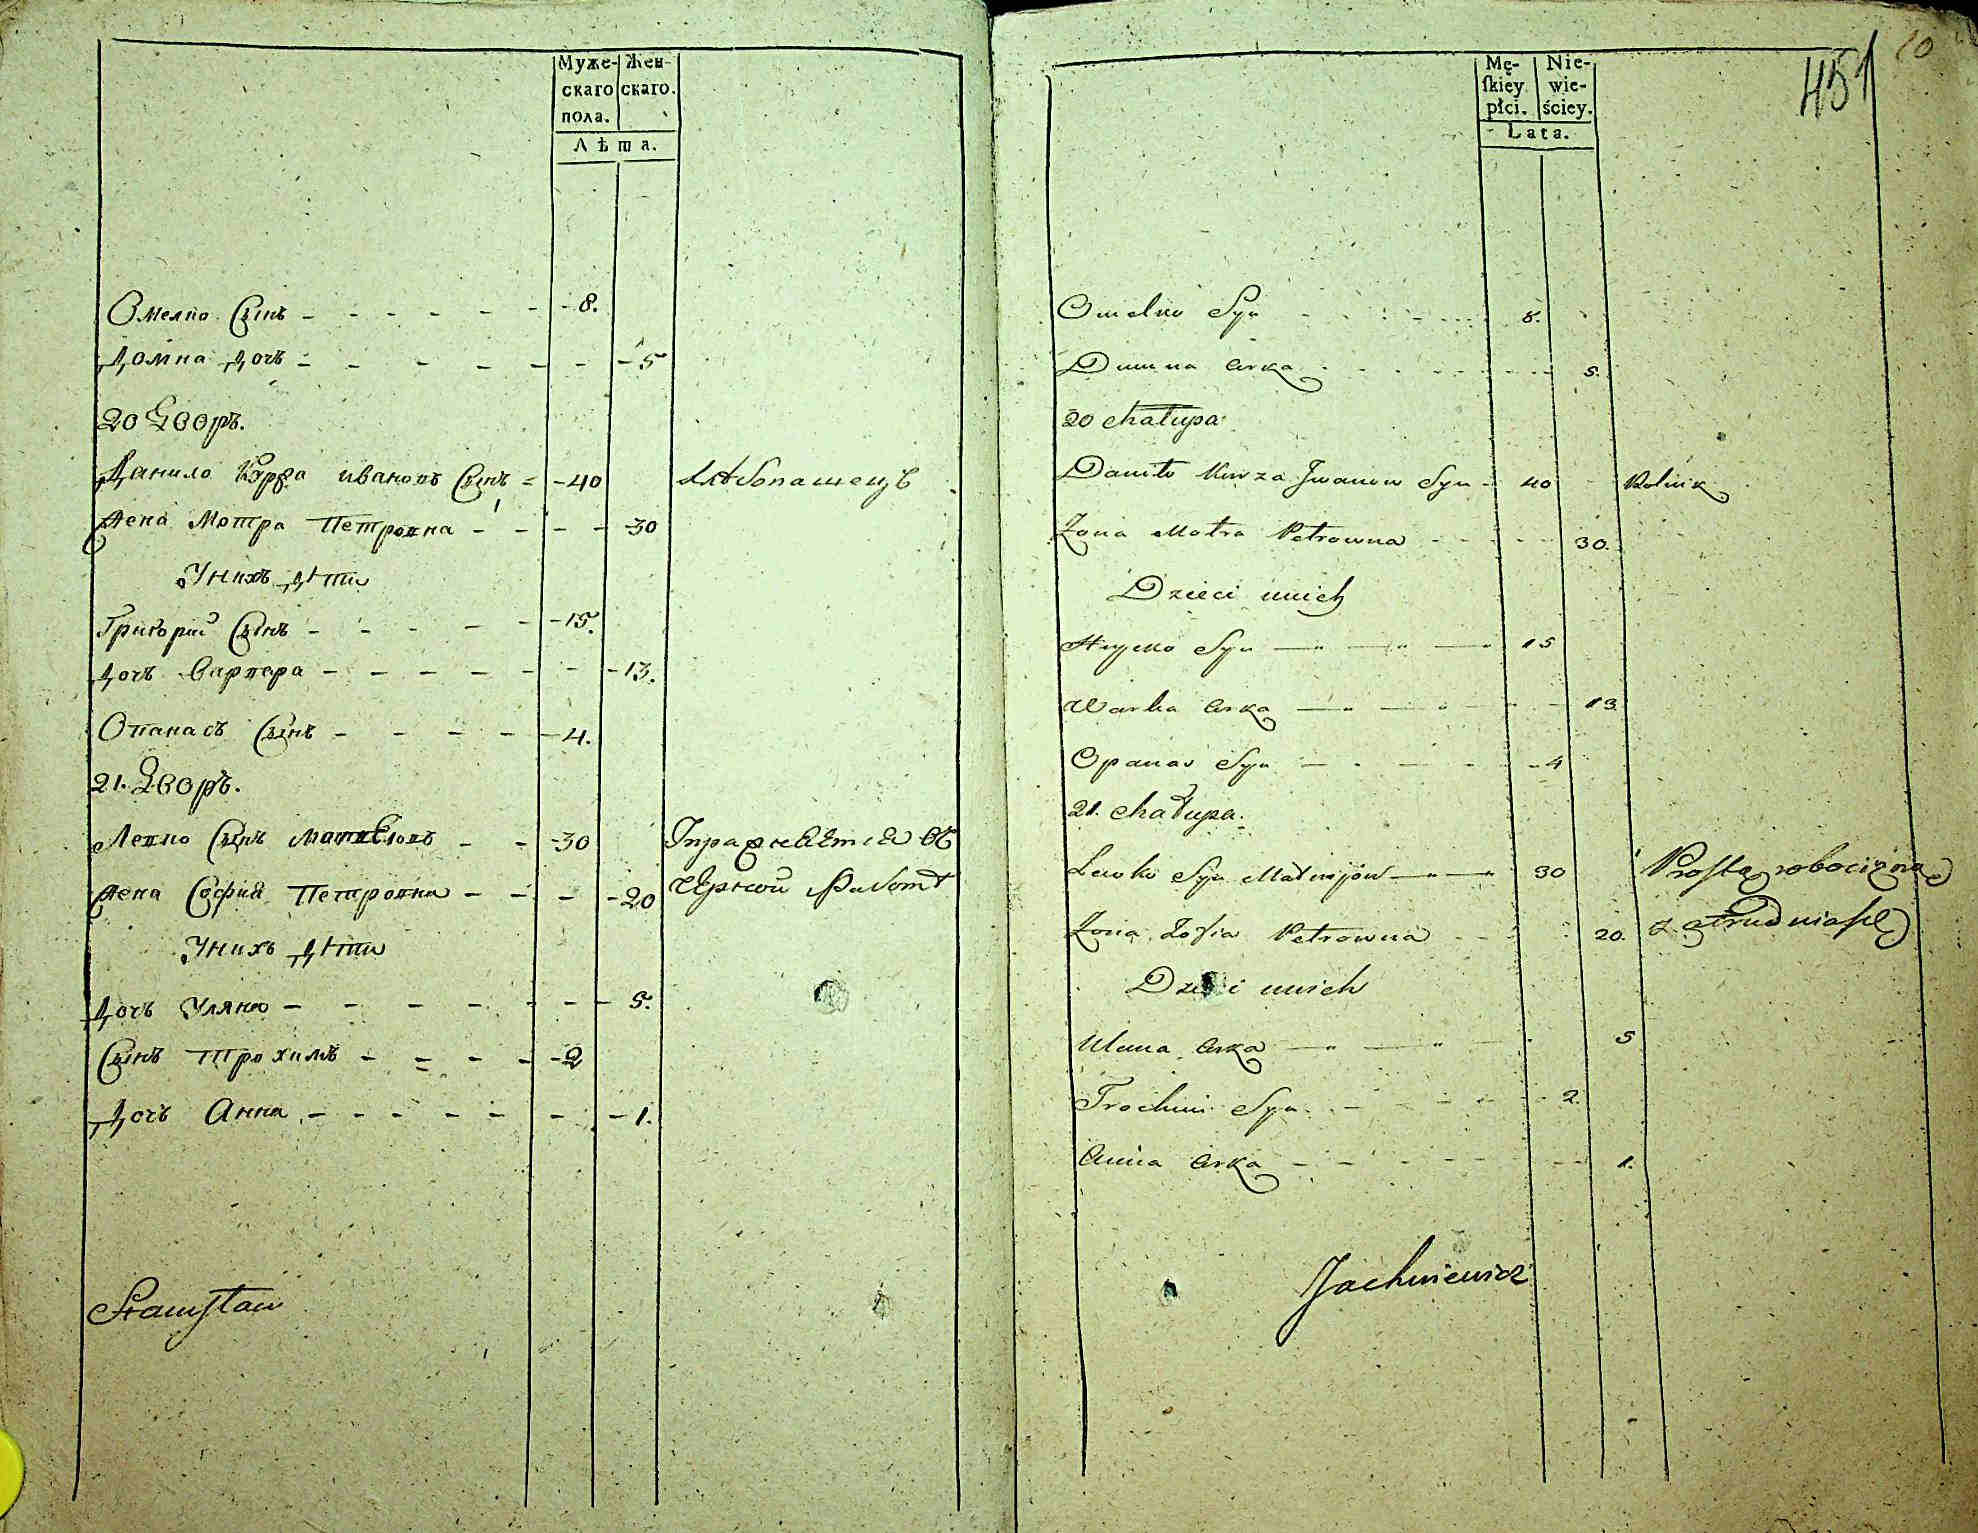 Муже-
скаго
пола.
Жен-
скаго.
Лѣта.
Омелко Сынъ 8.
Домна Дочъ 5
20 Дворъ.
Данило Курза Ивановъ Сынъ 40 Хлѣбопашецъ
Жена Мотра Петровна 30
У нихъ дѣти
Григорий Сынъ 15.
Дочъ Варвара 13.
Опанасъ Сынъ 4.
21. Дворъ.
Левко Сынъ Матвѣювъ 30 Упражняется въ
Жена София Петровна 20 черной работѣ
У нихъ дѣти
Дочъ Уляна 5.
Сынъ Трохимъ 2
Дочъ Анна 1.
Stanisław
10
451
Mę-
ſkiey
płci.
Nie-
wie-
ściey.
Lata.
Omelko Syn 8.
Dumna Crka 5.
20 chałupa
Daniło Kurza Jwanow Syn 40 Rolnik
Żona Motra Petrowna 30.
Dzieci unich
Hryćko Syn 15
Warka Crka 13
Opanas Syn 4
21. chałupa.
Lewko Syn Matwijów 30 Prostą robocizną
Żona Zofia Petrowna 20. zatrudnia się
Dzieci unich
Ulana Crka 5
Trochim Syn 2.
Anna Crka 1.
Jachniewicz